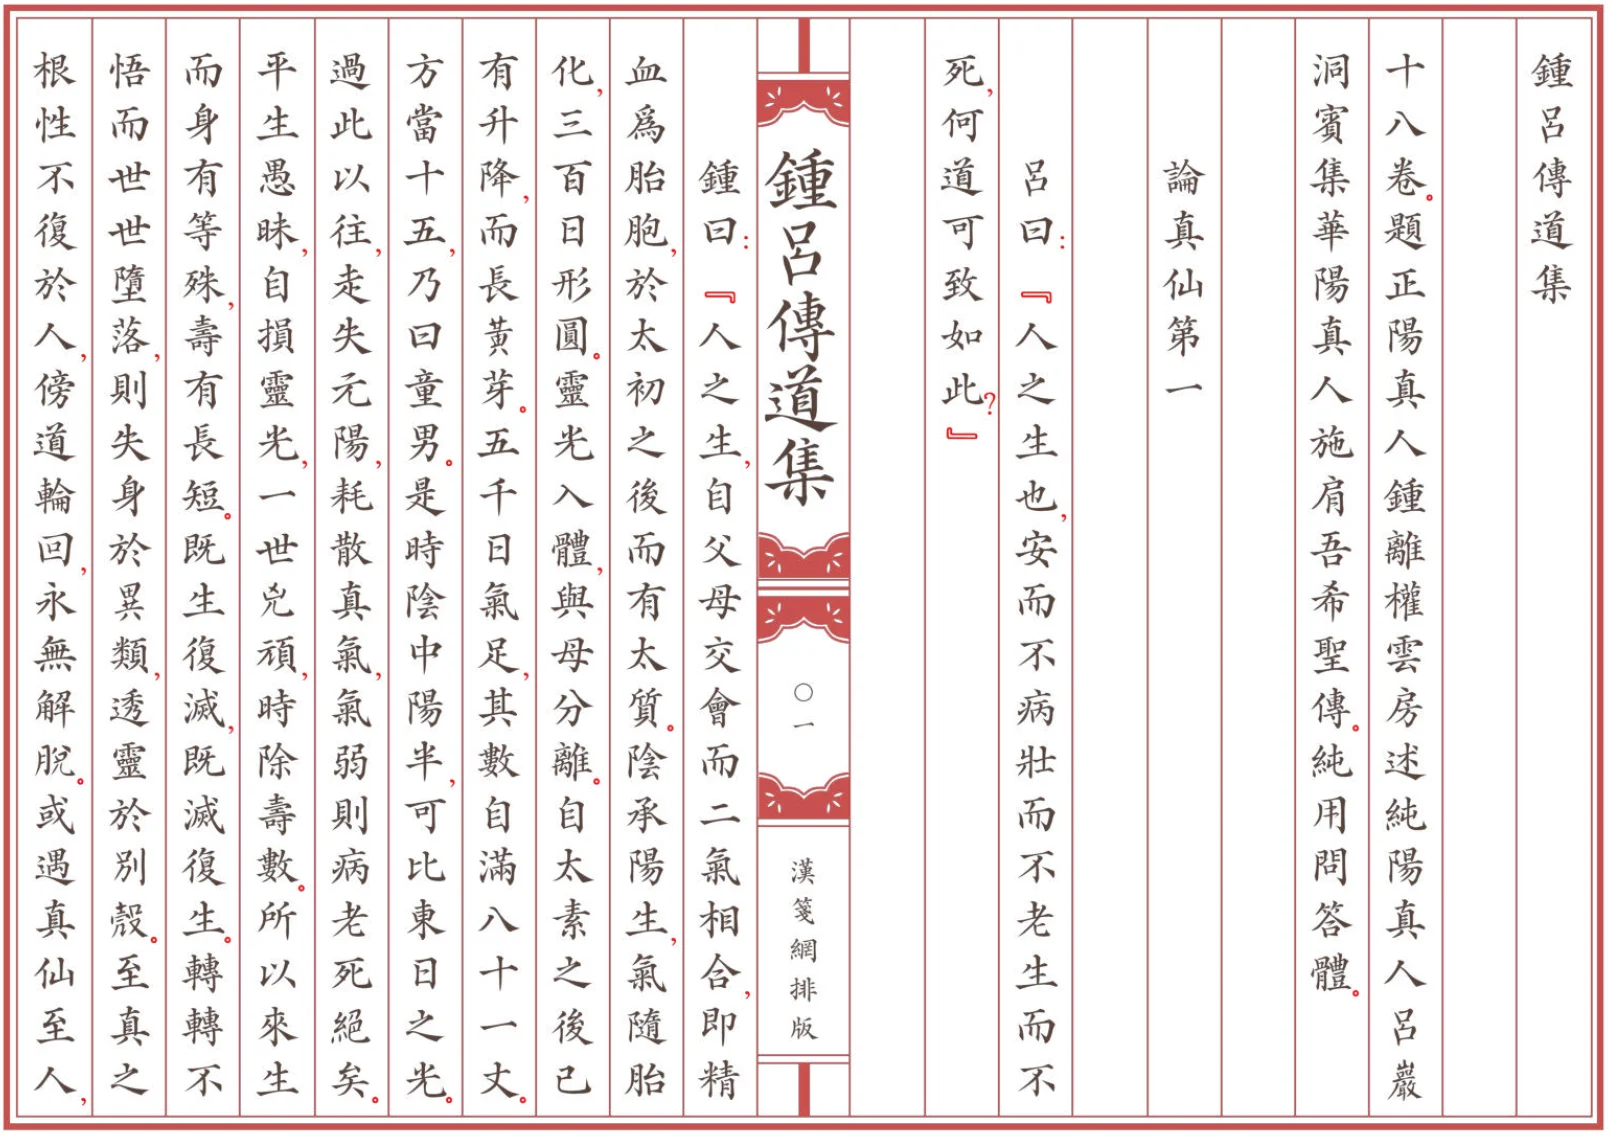 鍾呂傳道集
十八卷。題正陽真人鍾離權雲房述純陽真人呂巖
洞賓集華陽真人施肩吾希聖傳。純用問答體。
論真仙第一
呂曰：『人之生也，安而不病壯而不老生而不
死，何道可致如此？』
鍾呂傳道集
〇一
漢箋網排版
鍾曰：『人之生，自父母交會而二氣相合，即精
血爲胎胞，於太初之後而有太質。陰承陽生，氣隨胎
化，三百日形圓。靈光入體，與母分離。自太素之後已
有升降，而長黃芽。五千日氣足，其數自滿八十一丈。
方當十五，乃曰童男。是時陰中陽半，可比東日之光。
過此以往，走失元陽，耗散真氣，氣弱則病老死絕矣。
平生愚昧，自損靈光，一世兇頑，時除壽數。所以來生
而身有等殊，壽有長短。既生復滅，既滅復生。轉轉不
悟而世世墮落，則失身於異類，透靈於別殼。至真之
根性不復於人，傍道輪回，永無解脫。或遇真仙至人，